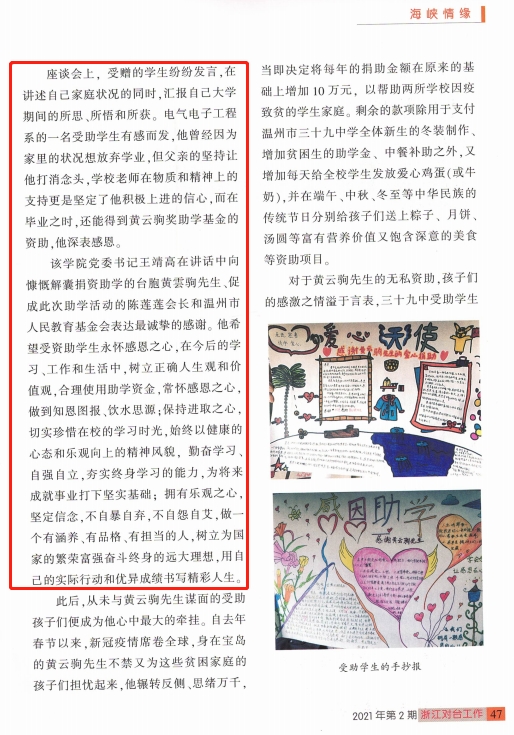 海峡情缘
座谈会上，受赠的学生纷纷发言，在
讲述自己家庭状况的同时，汇报自己大学
期间的所思、所悟和所获。电气电子工程
系的一名受助学生有感而发，他曾经因为
家里的状况想放弃学业，但父亲的坚持让
他打消念头，学校老师在物质和精神上的
支持更是坚定了他积极上进的信心，而在
毕业之时，还能得到黄云驹奖助学基金的
资助，他深表感恩。
该学院党委书记王靖高在讲话中向
慷慨解囊捐资助学的台胞黄雲驹先生、促
成此次助学活动的陈莲莲会长和温州市
人民教育基金会表达最诚挚的感谢。他希
望受资助学生永怀感恩之心，在今后的学
习、工作和生活中，树立正确人生观和价
值观，合理使用助学资金，常怀感恩之心，
做到知恩图报、饮水思源；保持进取之心，
切实珍惜在校的学习时光，始终以健康的
心态和乐观向上的精神风貌，勤奋学习、
自强自立，夯实终身学习的能力，为将来
成就事业打下坚实基础；拥有乐观之心，
坚定信念，不自暴自弃，不自怨自艾，做一
个有涵养、有品格、有担当的人，树立为国
家的繁荣富强奋斗终身的远大理想，用自
己的实际行动和优异成绩书写精彩人生。
此后，从未与黄云驹先生谋面的受助
孩子们便成为他心中最大的牵挂。自去年
春节以来，新冠疫情席卷全球，身在宝岛
的黄云驹先生不禁又为这些贫困家庭的
孩子们担忧起来，他辗转反侧、思绪万千，
当即决定将每年的捐助金额在原来的基
础上增加 10 万元，以帮助两所学校因疫
致贫的学生家庭。剩余的款项除用于支付
温州市三十九中学全体新生的冬装制作、
增加贫困生的助学金、中餐补助之外，又
增加每天给全校学生发放爱心鸡蛋（或牛
奶），并在端午、中秋、冬至等中华民族的
传统节日分别给孩子们送上粽子、月饼、
汤圆等富有营养价值又饱含深意的美食
等资助项目。
对于黄云驹先生的无私资助，孩子们
的感激之情溢于言表，三十九中受助学生
爱心天使
感谢黄云驹先生的爱心捐助
感恩助学
感谢黄云驹先生
受助学生的手抄报
2021 年第 2 期 浙江对台工作 47